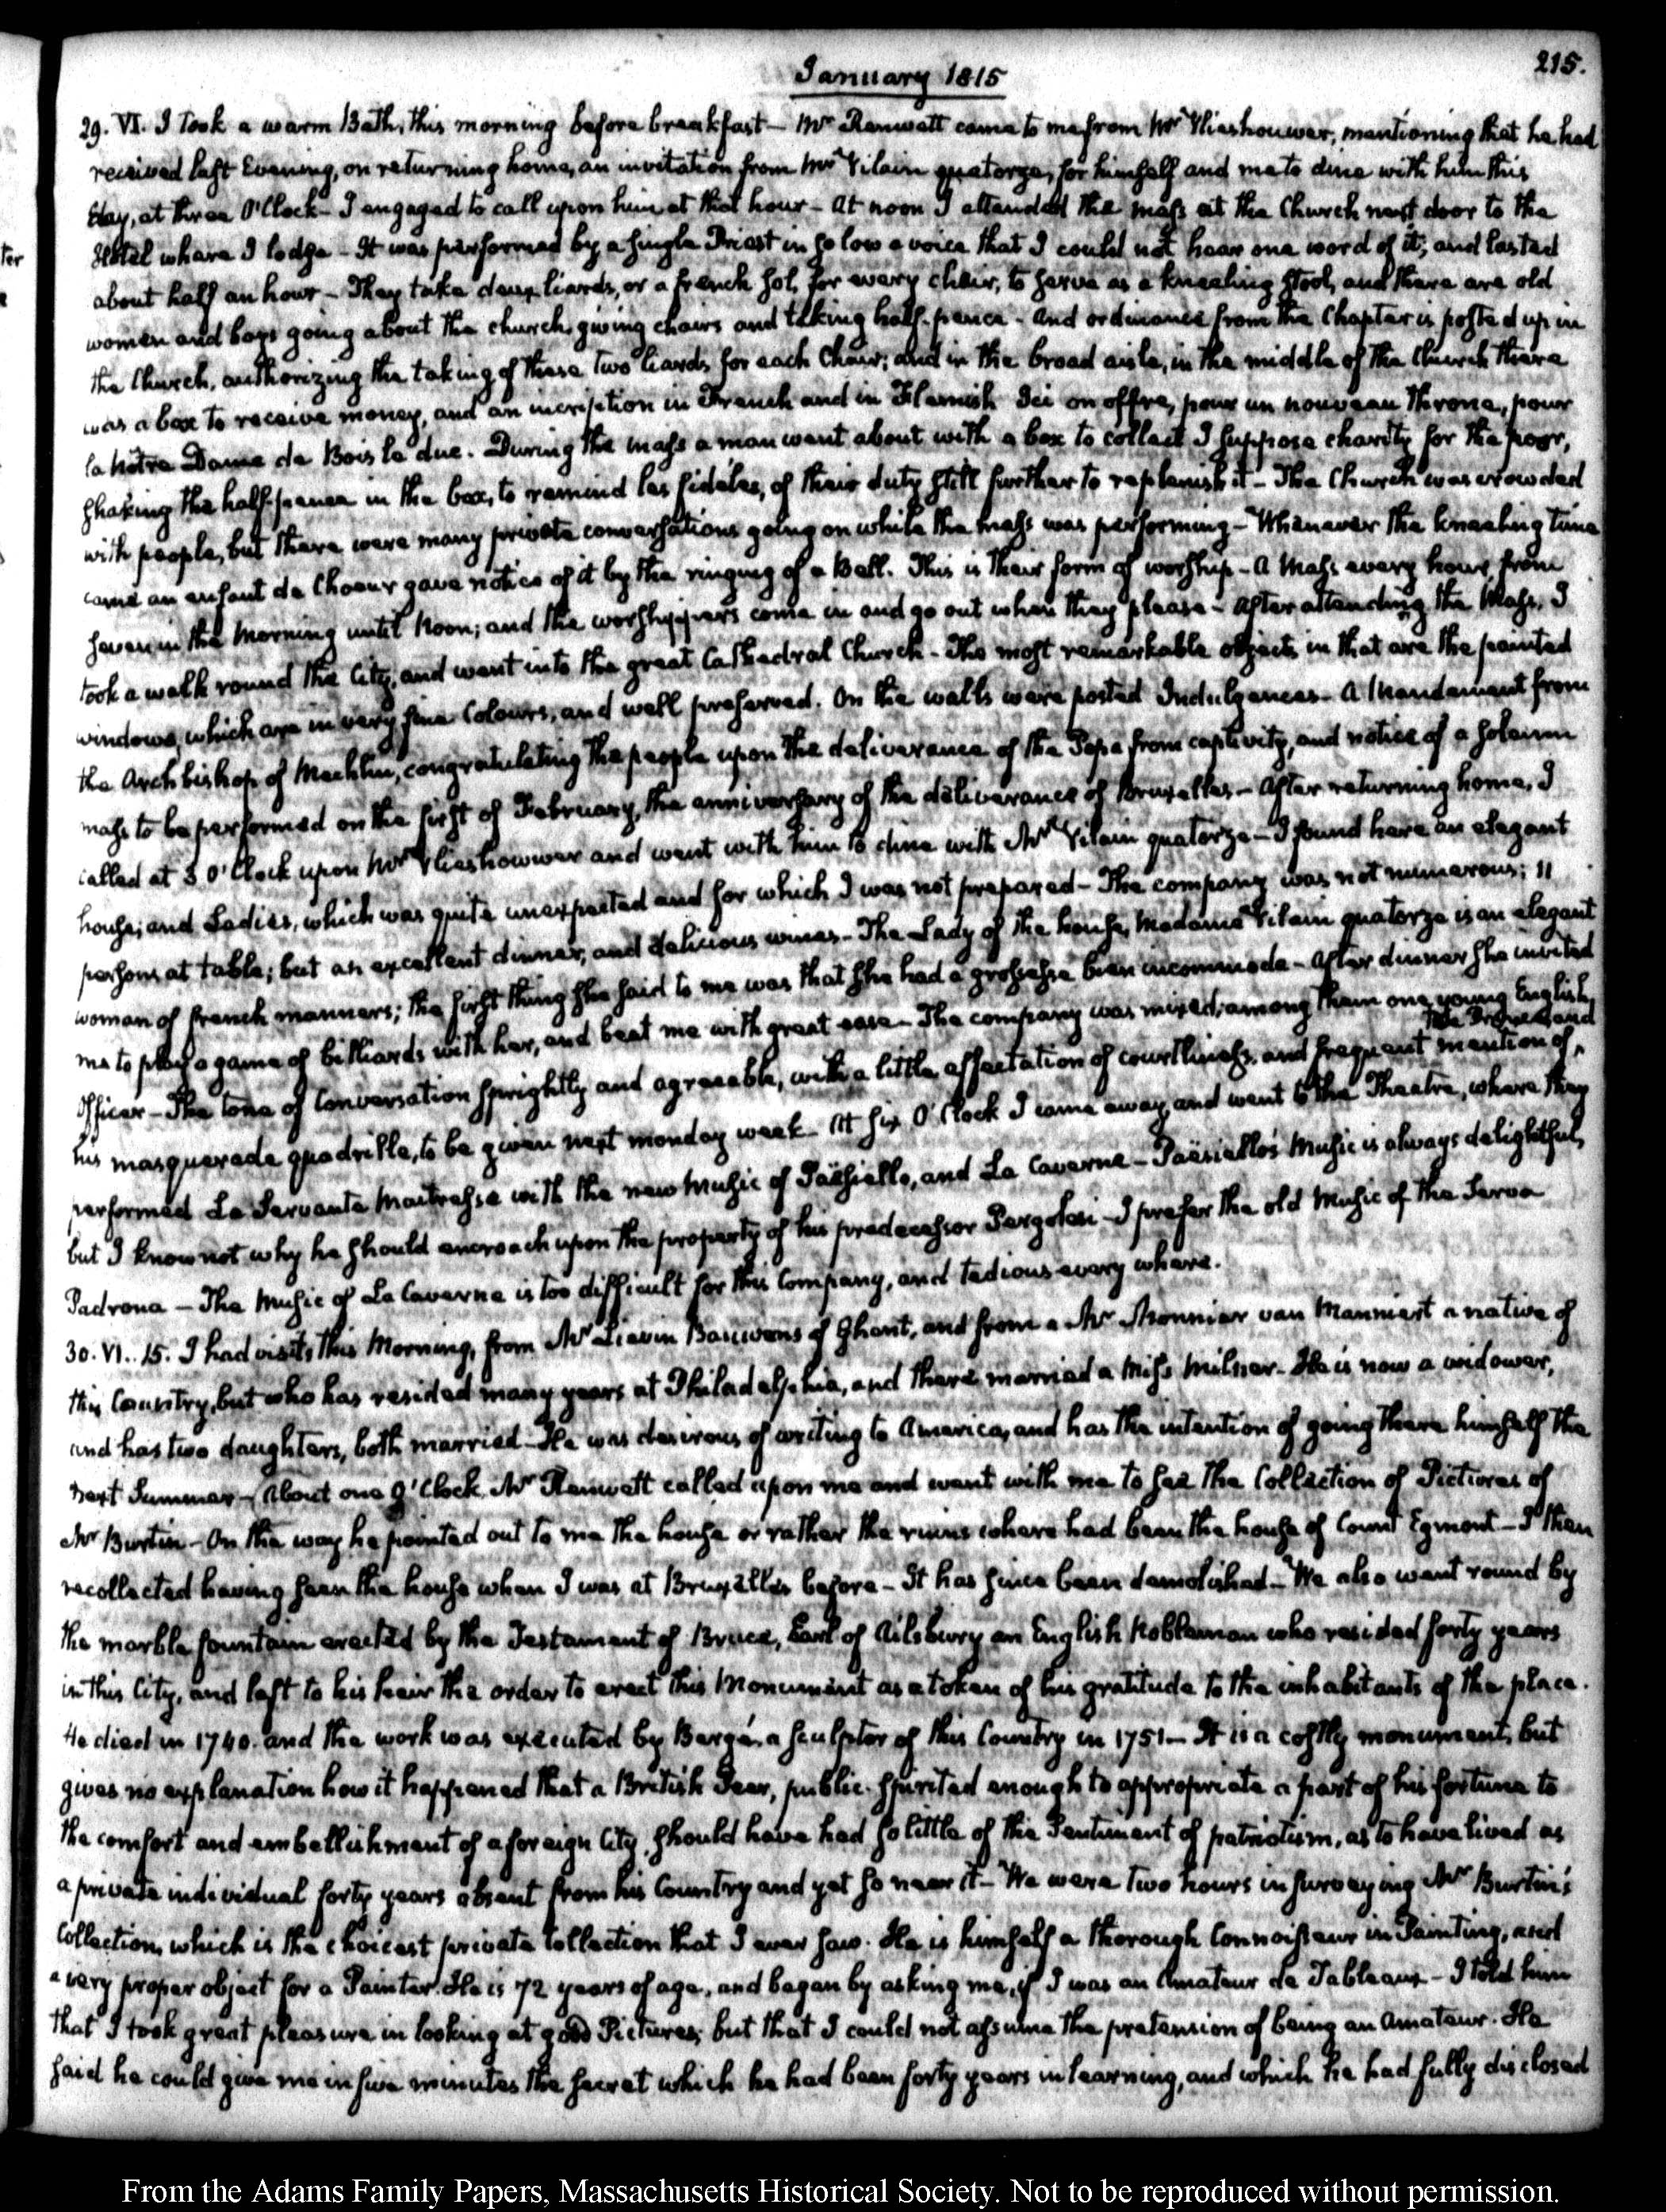 215.
January 1815
29. VI. I took a warm Bath, this morning before breakfast — Mr Ranwatt came to me from Mr Vlieshouwer, mentioning that he had
received last Evening, on returning home, an invitation from Mr Vilain quatorze, for himself and me to dine with him this
day, at three O'Clock — I engaged to call upon him at that hour — At noon I attended the mass at the Church next door to the
Hotel where I lodge — It was performed by a single Priest in so low a voice that I could not hear one word of it; and lasted
about half an hour — They take deux liards, or a french sol, for every chair, to serve as a kneeling stool, and there are old
women and boys going about the church, giving chairs and taking half-pence — And ordinance from the Chapter is posted up in
the Church, authorizing the taking of these two liards for each Chair; and in the broad aisle, in the middle of the Church there
was a box to receive money, and an incription in French and in Flemish Ici on offre, pour un nouveau Throne, pour
la Nôtre Dame de Bois le duc. During the mass a man went about with a box to collect I suppose charity for the poor,
shaking the half-pence in the box, to remind les fidèles, of their duty still further to replenish it — The Church was crowded
with people, but there were many private conversations going on while the mass was performing — Whenever the kneeling time
came an enfant de Choeur gave notice of it by the ringing of a Bell. This is their form of worship — A Mass every hour from
seven in the Morning until Noon; and the worshippers come in and go out when they please — After attending the Mass, I
took a walk round the City, and went into the great Cathedral Church — The most remarkable objects in that are the painted
windows, which are in very fine Colours, and well preserved. On the walls were posted Indulgences — A Mandament from
the Archbishop of Mechlin, congratulating the people upon the deliverance of the Pope from captivity, and notice of a solemn
mass to be performed on the first of February, the anniversary of the deliverance of Bruxelles — After returning home, I
called at 3 O'Clock upon Mr Vlieshouwer and went with him to dine with Mr Vilain quatorze — I found here an elegant
house; and Ladies, which was quite unexpected and for which I was not prepared — The company was not numerous; 11
persons at table; but an excellent dinner, and delicious wines — The Lady of the house, Madame Vilain quatorze is an elegant
woman of french manners; the first thing she said to me was that she had a grossesse bien incommode — After dinner she invited
me to play a game of billiards with her, and beat me with great ease — The company was mixed; among them one young English
Officer — The tone of Conversation sprightly and agreeable, with a little affectation of courtliness, and frequent mention of, the Prince and
his masquerade quadrille, to be given next monday week. At six O'Clock I came away, and went to the Theatre, where they
performed La Servante Maitresse with the new Music of Paësiello, and La Caverne — Paësiello's Music is always delightful,
but I know not why he should encroach upon the property of his predecessor Pergolesi — I prefer the old Music of the Serva
Padrona — The Music of La Caverne is too difficult for this Company, and tedious every where.
30. VI.. 15. I had visits this Morning, from Mr Lievin Bauwens of Ghent, and from a Mr Monnier van Manniert a native of
this Country, but who has resided many years at Philadelphia, and there married a Miss Milner — He is now a widower,
and has two daughters, both married — He was desirous of writing to America, and has the intention of going there himself the
next Summer — About one O'Clock, Mr Ranwett called upon me and went with me to see the Collection of Pictures of
Mr Burtin — On the way he pointed out to me the house or rather the ruins where had been the house of Count Egmont — I then
recollected having seen the house when I was at Bruxelles before — It has since been demolished — We also went round by
the marble fountain erected by the Testament of Bruce, Earl of Ailsbury an English Nobleman who resided forty years
in this City, and left to his heir the order to erect this Monument as a token of his gratitude to the inhabitants of the place.
He died in 1740. and the work was executed by Bergé, a sculptor of this Country in 1751 — It is a costly monument, but
gives no explanation how it happened that a British Peer, public-spirited enough to appropriate a part of his fortune to
the comfort and embellishment of a foreign City, should have had so little of the Sentiment of patriotism, as to have lived as
a private individual forty years absent from his Country and yet so near it — We were two hours in surveying Mr Burtin's
Collection, which is the choicest private Collection that I ever saw. He is himself a thorough Connoisseur in Painting, and
a very proper object for a Painter. He is 72 years of age, and began by asking me, if I was an Amateur de Tableaux — I told him
that I took great pleasure in looking at good Pictures; but that I could not assume the pretension of being an Amateur. He
said he could give me in five minutes the secret which he had been forty years in learning, and which he had fully disclosed
From the Adams Family Papers, Massachusetts Historical Society. Not to be reproduced without permission.